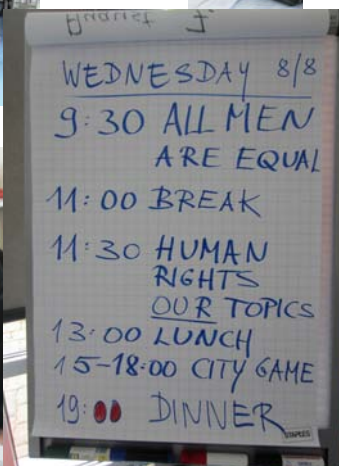 WEDNESDAY 8/8
9:30 ALL MEN
ARE EQUAL
11:00 BREAK
11:30 HUMAN
RIGHTS
OUR TOPICS
13:00 LUNCH
15-18:00 CITY GAME
19:00 DINNER
STAPLES